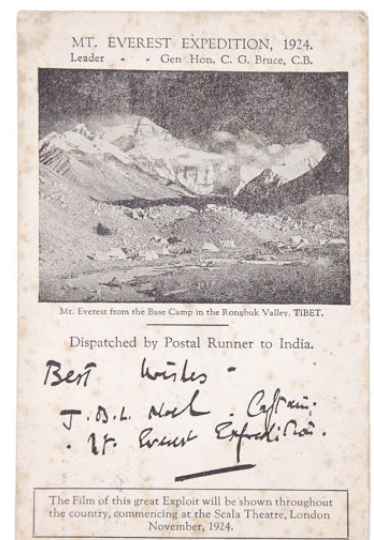 MT. EVEREST EXPEDITION, 1924.
Leader - - Gen Hon. C. G. Bruce, C.B.
Mt. Everest from the Base Camp in the Rongbuk Valley, TIBET.
Dispatched by Postal Runner to India.
Best Wishes -
J.B.L. Noel. Captain.
. Mt. Everest Expedition.
The Film of this great Exploit will be shown throughout
the country, commencing at the Scala Theatre, London
November, 1924.